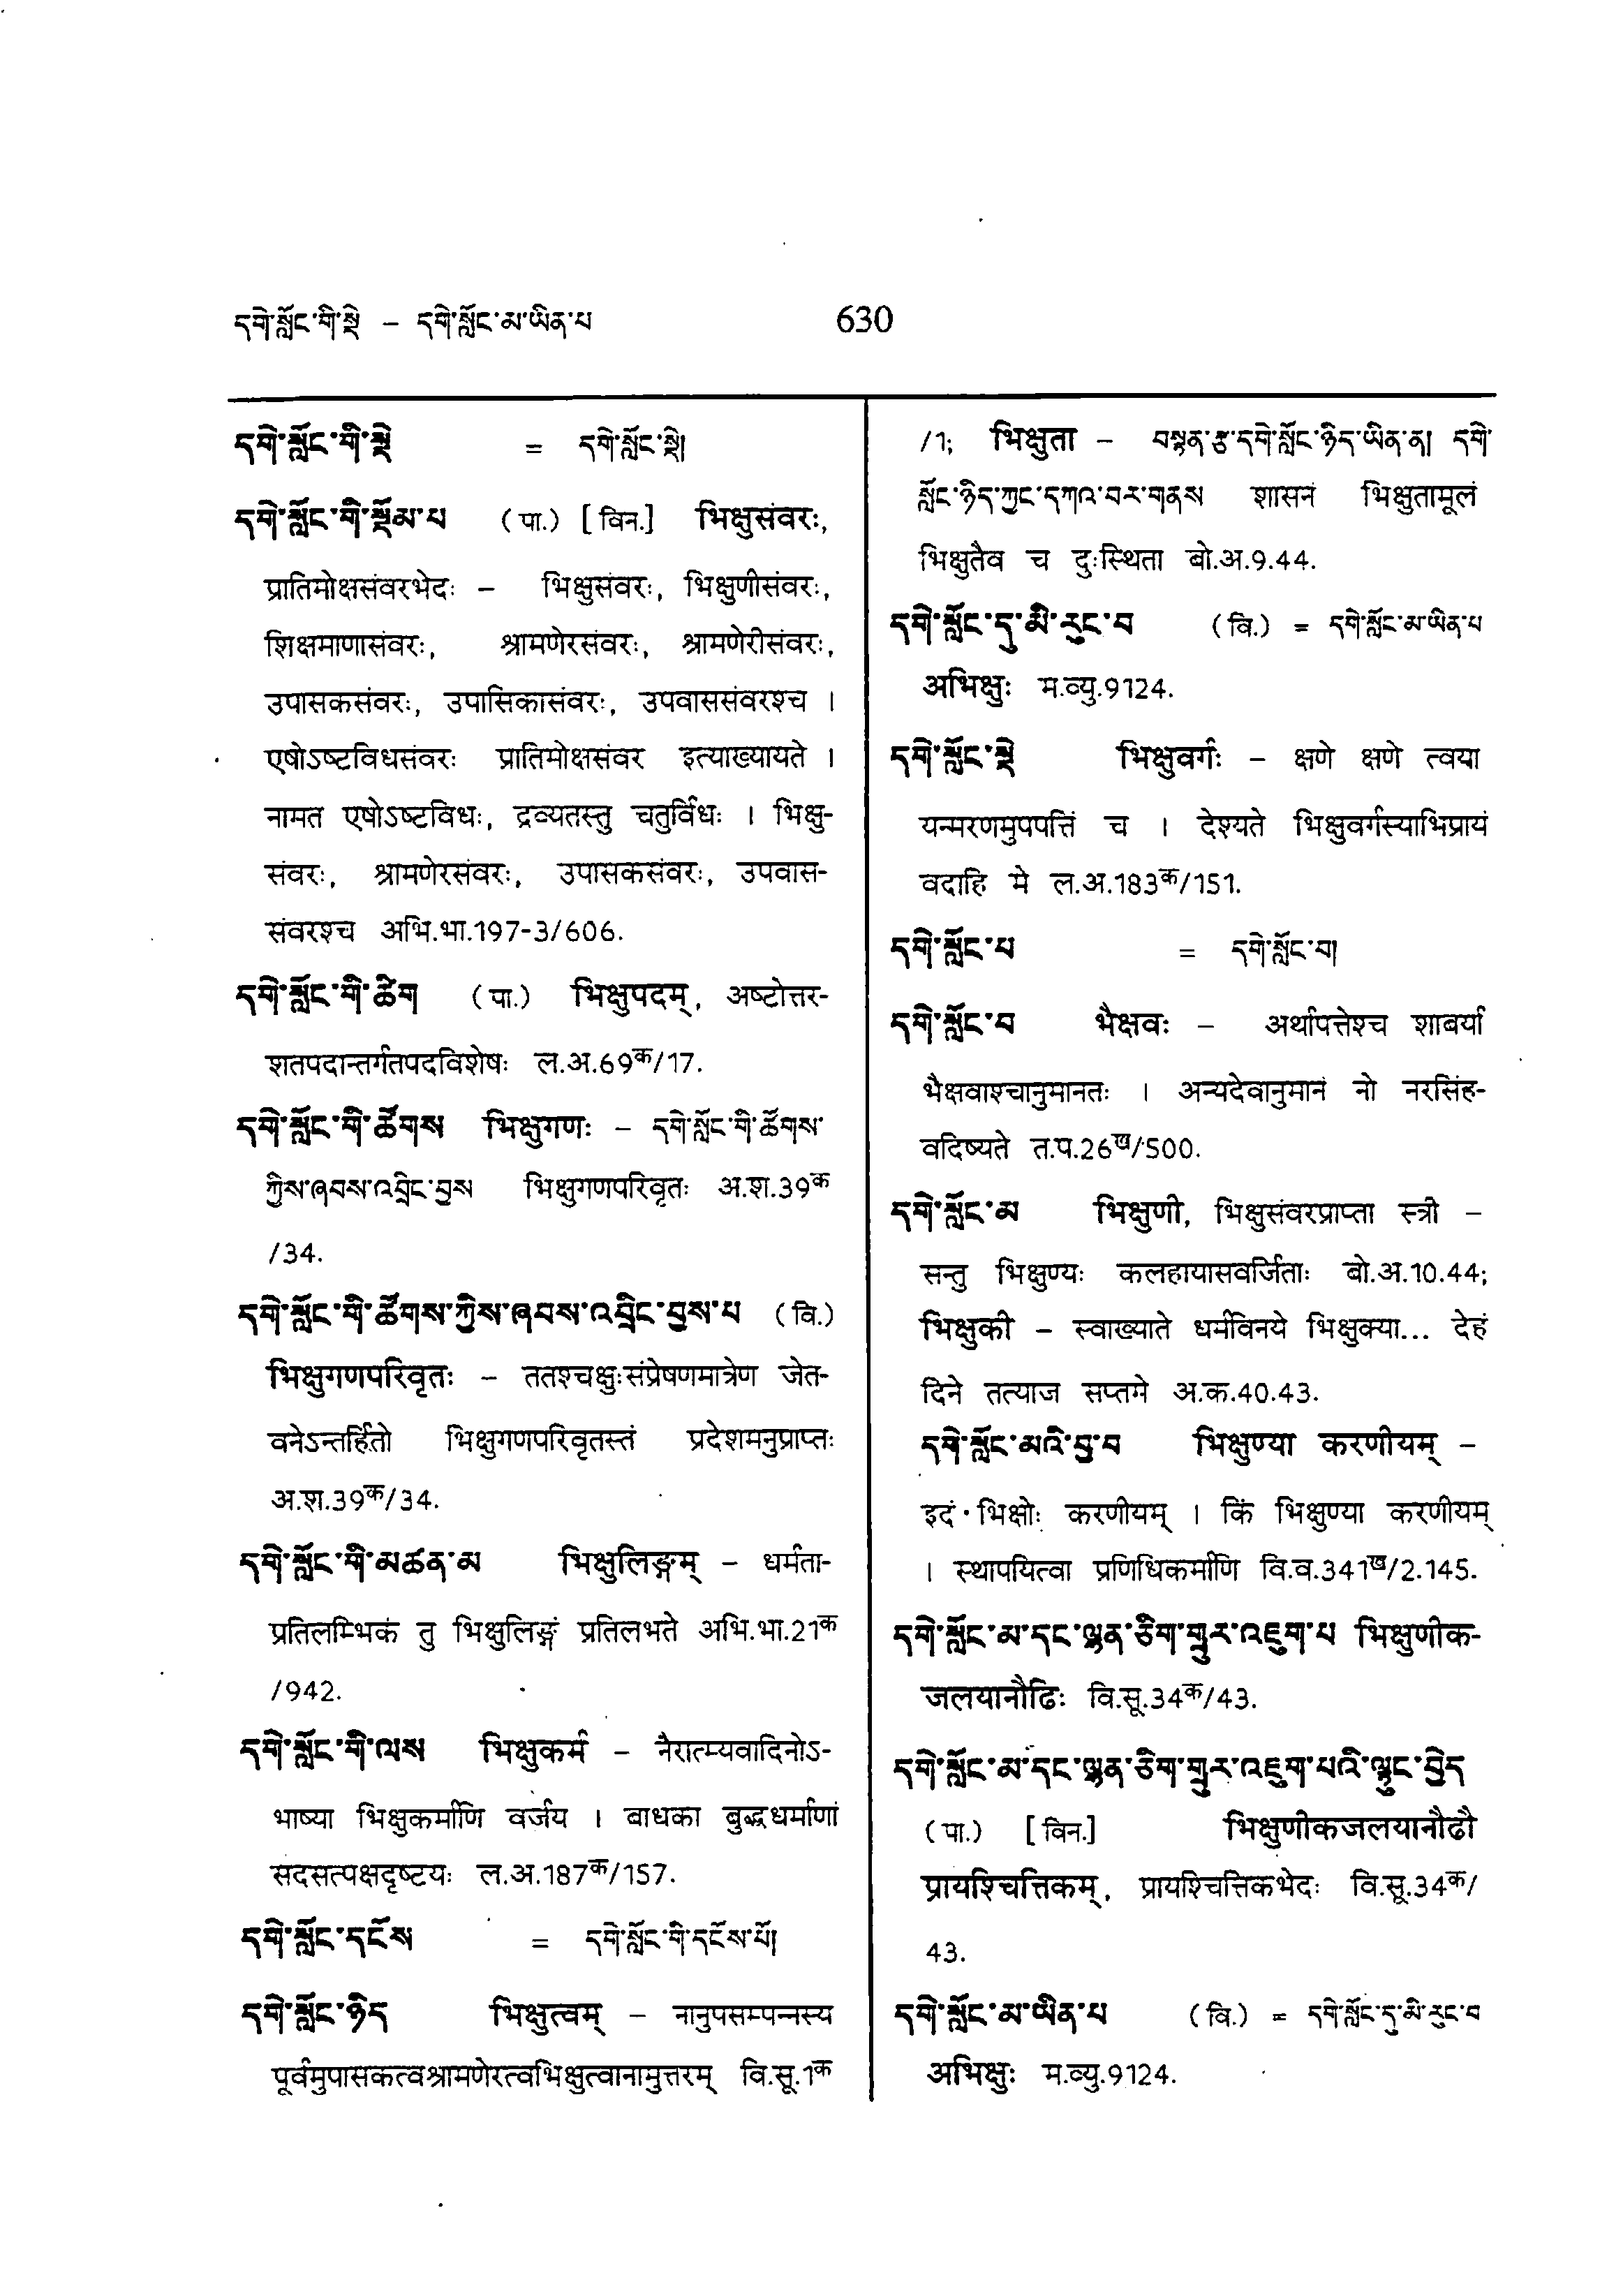 དགེ་སློང་གི་སྡེ – དགེ་སློང་མ་ཡིན་པ 630
དགེ་སློང་གི་སྡེ = དགེ་སློང་སྡེ།
དགེ་སློང་གི་སྡོམ་པ (पा.) [विन.] भिक्षुसंवरः,
प्रातिमोक्षसंवरभेदः – भिक्षुसंवरः, भिक्षुणीसंवरः,
शिक्षमाणासंवरः, श्रामणेरसंवरः, श्रामणेरीसंवरः,
उपासकसंवरः, उपासिकासंवरः, उपवाससंवरश्च ।
एषोऽष्टविधसंवरः प्रातिमोक्षसंवर इत्याख्यायते ।
नामत एषोऽष्टविधः, द्रव्यतस्तु चतुर्विधः । भिक्षु-
संवरः, श्रामणेरसंवरः, उपासकसंवरः, उपवास-
संवरश्च अभि.भा.197-3/606.
དགེ་སློང་གི་ཚིག (पा.) भिक्षुपदम्, अष्टोत्तर-
शतपदान्तर्गतपदविशेषः ल.अ.69क/17.
དགེ་སློང་གི་ཚོགས भिक्षुगणः – དགེ་སློང་གི་ཚོགས་
ཀྱིས་ཞབས་འབྲིང་བྱས भिक्षुगणपरिवृतः अ.श.39क
/34.
དགེ་སློང་གི་ཚོགས་ཀྱིས་ཞབས་འབྲིང་བྱས་པ (वि.)
भिक्षुगणपरिवृतः – ततश्चक्षुःसंप्रेषणमात्रेण जेत-
वनेऽन्तर्हितो भिक्षुगणपरिवृतस्तं प्रदेशमनुप्राप्तः
अ.श.39क/34.
དགེ་སློང་གི་མཚན་མ भिक्षुलिङ्गम् – धर्मता-
प्रतिलम्भिकं तु भिक्षुलिङ्गं प्रतिलभते अभि.भा.21क
/942.
དགེ་སློང་གི་ལས भिक्षुकर्म – नैरात्म्यवादिनोऽ-
भाष्या भिक्षुकर्माणि वर्जय । बाधका बुद्धधर्माणां
सदसत्पक्षदृष्टयः ल.अ.187क/157.
དགེ་སློང་དངོས = དགེ་སློང་གི་དངོས་པོ།
དགེ་སློང་ཉིད भिक्षुत्वम् – नानुपसम्पन्नस्य
पूर्वमुपासकत्वश्रामणेरत्वभिक्षुत्वानामुत्तरम् वि.सू.1क
/1; भिक्षुता – བསྟན་རྩ་དགེ་སློང་ཉིད་ཡིན་ན། དགེ་
སློང་ཉིད་ཀྱང་དཀའ་བར་གནས शासनं भिक्षुतामूलं
भिक्षुतैव च दुःस्थिता बो.अ.9.44.
དགེ་སློང་དུ་མི་རུང་བ (वि.) = དགེ་སློང་མ་ཡིན་པ
अभिक्षुः म.व्यु.9124.
དགེ་སློང་སྡེ भिक्षुवर्गः – क्षणे क्षणे त्वया
यन्मरणमुपपत्तिं च । देश्यते भिक्षुवर्गस्याभिप्रायं
वदाहि मे ल.अ.183क/151.
དགེ་སློང་པ = དགེ་སློང་བ།
དགེ་སློང་བ भैक्षवः – अर्थापत्तेश्च शाबर्या
भैक्षवाश्चानुमानतः । अन्यदेवानुमानं नो नरसिंह-
वदिष्यते त.प.26ख/500.
དགེ་སློང་མ भिक्षुणी, भिक्षुसंवरप्राप्ता स्त्री –
सन्तु भिक्षुण्यः कलहायासवर्जिताः बो.अ.10.44;
भिक्षुकी – स्वाख्याते धर्मविनये भिक्षुक्या... देहं
दिने तत्याज सप्तमे अ.क.40.43.
དགེ་སློང་མའི་བྱ་བ भिक्षुण्या करणीयम् –
इदं भिक्षोः करणीयम् । किं भिक्षुण्या करणीयम्
। स्थापयित्वा प्रणिधिकर्माणि वि.व.341ख/2.145.
དགེ་སློང་མ་དང་ལྷན་ཅིག་གྲུར་འཇུག་པ भिक्षुणीक-
जलयानौढिः वि.सू.34क/43.
དགེ་སློང་མ་དང་ལྷན་ཅིག་གྲུར་འཇུག་པའི་ལྟུང་བྱེད
(पा.) [विन.] भिक्षुणीकजलयानौढौ
प्रायश्चित्तिकम्, प्रायश्चित्तिकभेदः वि.सू.34क/
43.
དགེ་སློང་མ་ཡིན་པ (वि.) = དགེ་སློང་དུ་མི་རུང་བ
अभिक्षुः म.व्यु.9124.